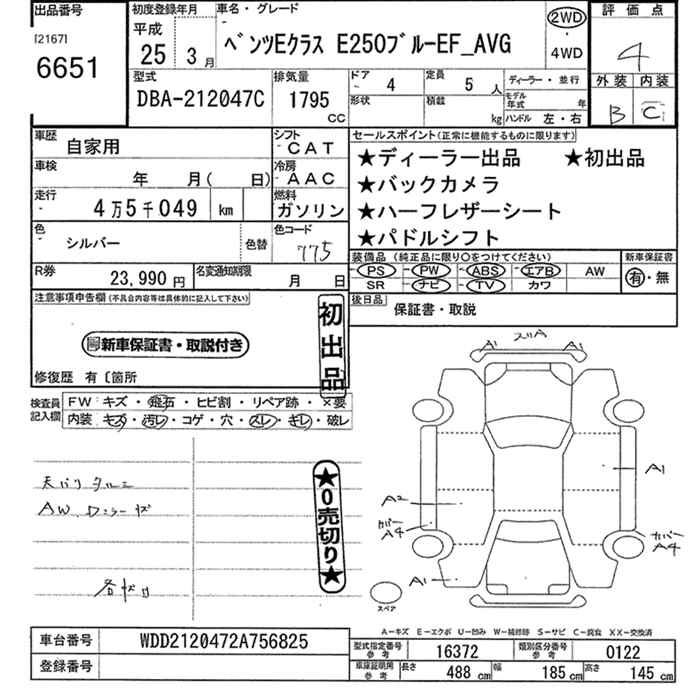 出品番号
[2167]
6651
初度登録年月
平成
25 3月
車名・グレード
ベンツEクラス E250ブルーEF_AVG
2WD
・
4WD
評価点
4
外装 内装
B C
型式
DBA-212047C
排気量
1795
CC
ドア 4
定員 5 人
形状
積載 kg
ディーラー・並行
モデル年式 年
ハンドル 左・右
車歴
自家用
シフト
CAT
車検
年 月( 日)
冷房
AAC
走行
4万5千049 km
燃料
ガソリン
色
シルバー
色替
色コード
775
R券
23,990円
名変通知期限
月 日
セールスポイント(正常に機能するものに限ります)
★ディーラー出品 ★初出品
★バックカメラ
★ハーフレザーシート
★パドルシフト
装備品(純正品に限り○をつけてください)
PS PW ABS エアB AW
SR ナビ TV カワ
新車保証書
有・無
後日品
保証書・取説
注意事項申告欄(不具合内容等は具体的に記入して下さい)
新車保証書・取説付き
初出品
修復歴 有〔箇所
検査員記入欄
FW キズ・飛石・ヒビ割・リペア跡・×要
内装 キズ・汚レ・コゲ・穴・スレ・キレ・破レ
天バリタルミ
AW、ロシーヤ
各ヤリ
★0売切り★
スリA
A1 A1
A1
A2
カバー
A4
カバー
A4
A1
スペア
A-キズ E-エクボ U-凹み W-補修跡 S-サビ C-腐食 XX-交換済
車台番号
WDD2120472A756825
登録番号
型式指定番号 参考
16372
類別区分番号 参考
0122
車庫証明用 参考
長さ 488 cm
幅 185 cm
高さ 145 cm